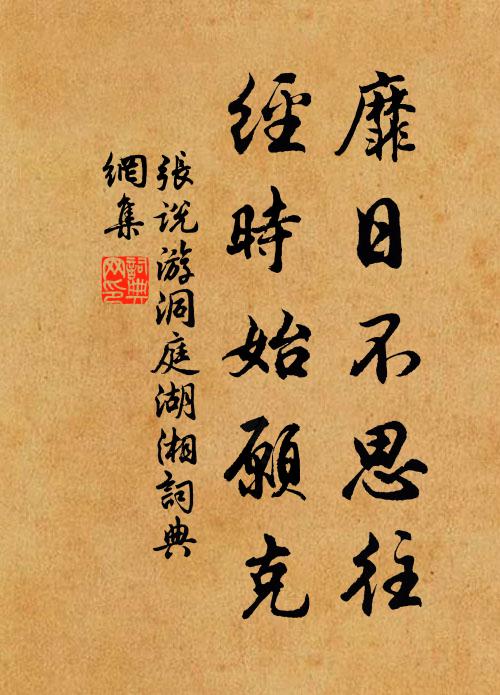 靡日不思往
經時始願克
張説游洞庭湖湘詞典
網集
詞典
网印